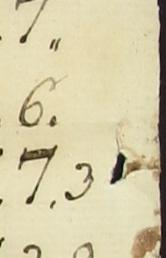 7 "
6.
7.3